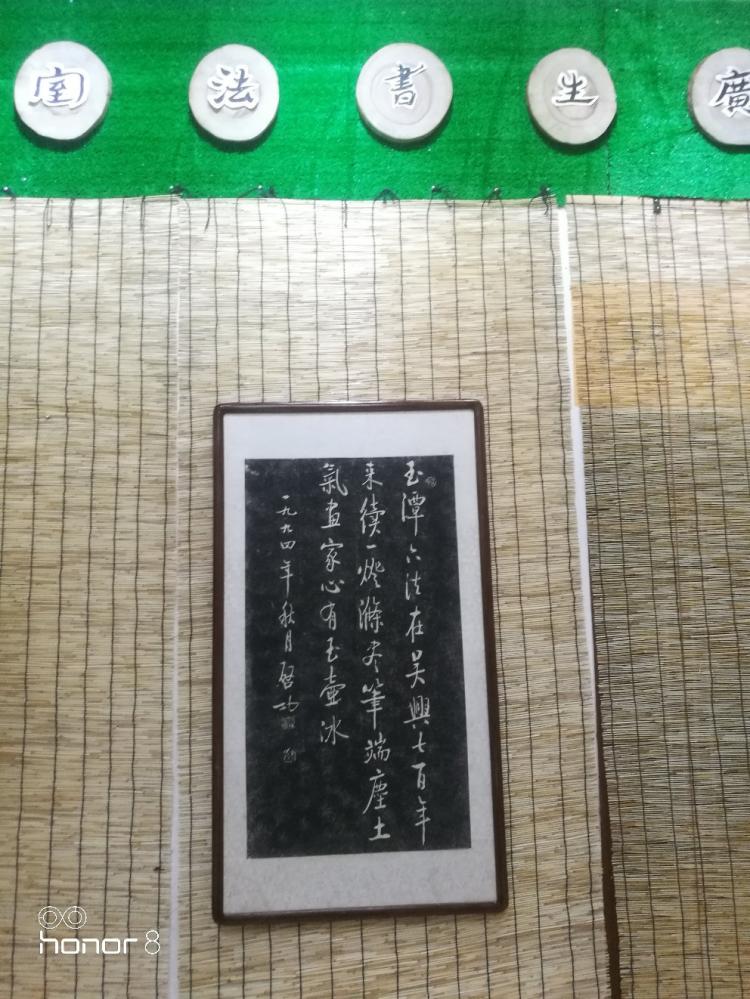 廣生書法室
玉潭六法在吴興七百年
来續一燈滌盡筆端塵土
氣畫家心有玉壺冰
一九九四年秋月啓功
honor 8